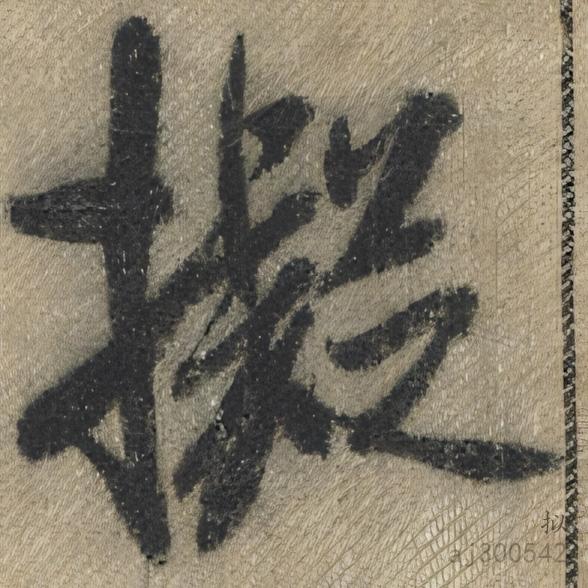 擬
拟
aj300542